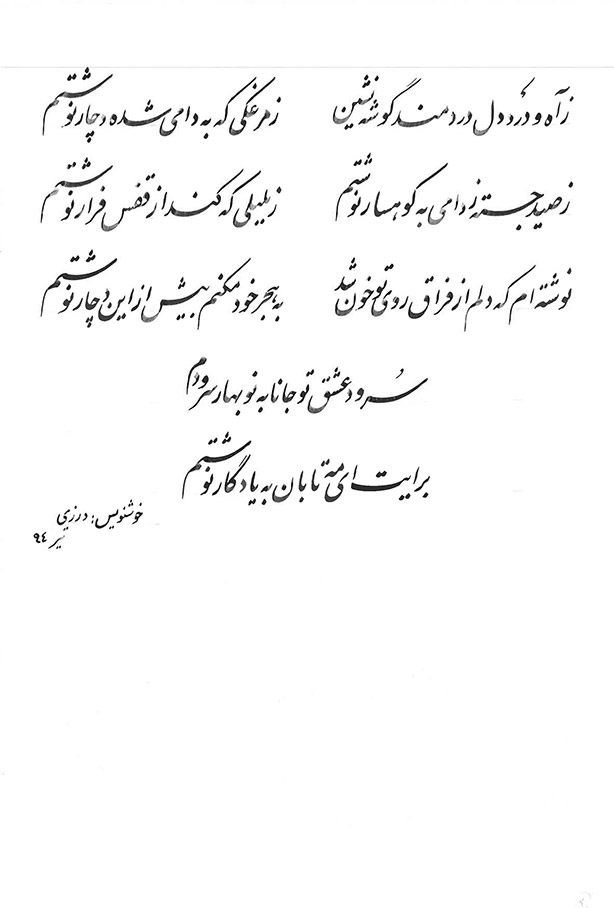 زآه و درد دل دردمند گوشه نشین زمرغکی که به دامی شده دچار نوشتم
زصید جسته زدامی به کوهسار نوشتم زبلبلی که کند از قفس فرار نوشتم
نوشته ام که دلم از فراق روی تو خون شد به هجر خود مکنم بیش از این دچار نوشتم
سرود عشق تو جانا به نوبهار سرودم
برایت ای مه تابان به یادگار نوشتم
خوشنویس: درزی
تیر ۹۴